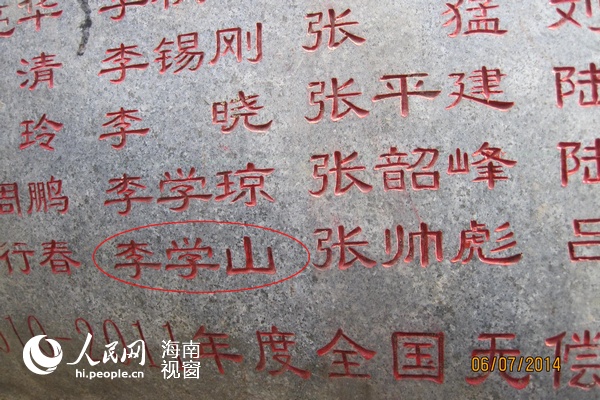 华 李 张 猛 刘
清 李锡刚 张平建 陆
玲 李 晓 张韶峰 陆
周鹏 李学琼 张帅彪 吕
行春 李学山
2010-2011年度全国无偿
人民网 海南视窗
hi.people.cn
06/07/2014